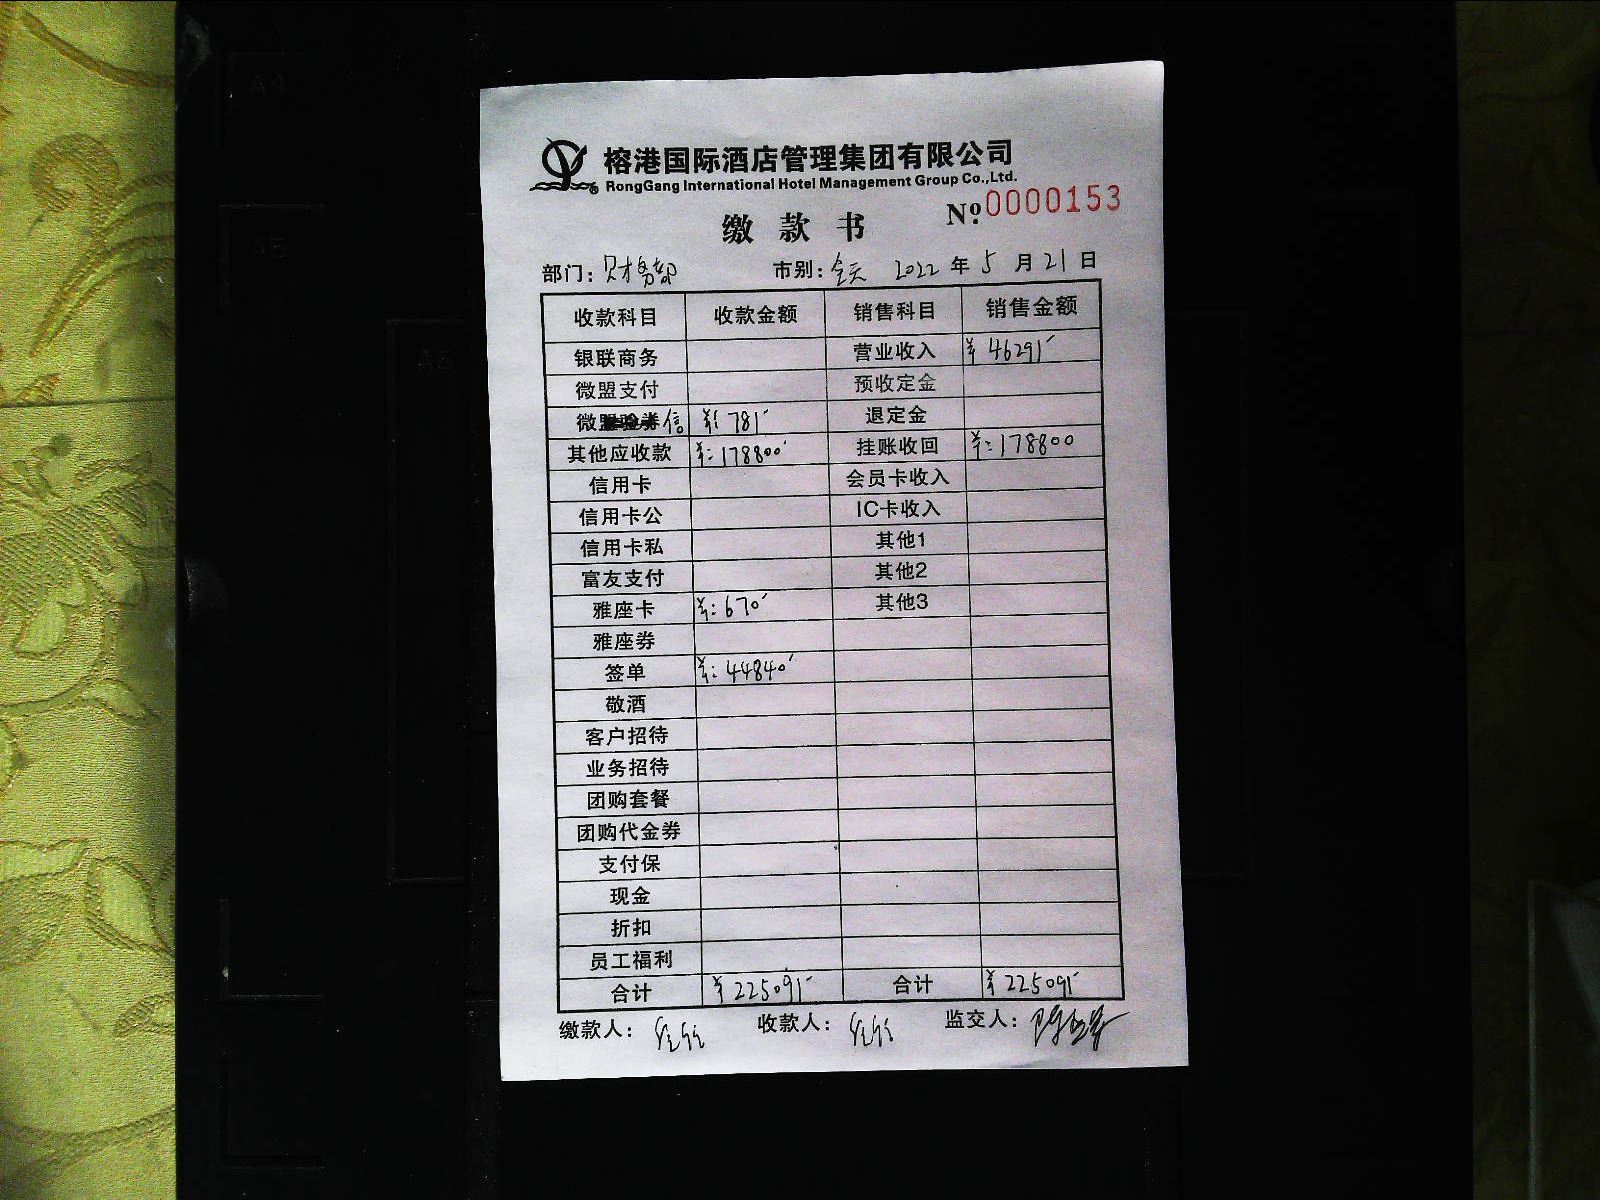 榕港国际酒店管理集团有限公司
RongGang International Hotel Management Group Co.,Ltd.
缴款书 №0000153
部门：财务部 市别：全天 2022年5月21日
收款科目 收款金额 销售科目 销售金额
银联商务 营业收入 ¥46291
微盟支付 预收定金
微信 ¥：781 退定金
其他应收款 ¥：178800 挂账收回 ¥：178800
信用卡 会员卡收入
信用卡公 IC卡收入
信用卡私 其他1
富友支付 其他2
雅座卡 ¥：670 其他3
雅座券
签单 ¥：44840
敬酒
客户招待
业务招待
团购套餐
团购代金券
支付保
现金
折扣
员工福利
合计 ¥225091 合计 ¥225091
缴款人： 收款人： 监交人：
A4
A5
A5